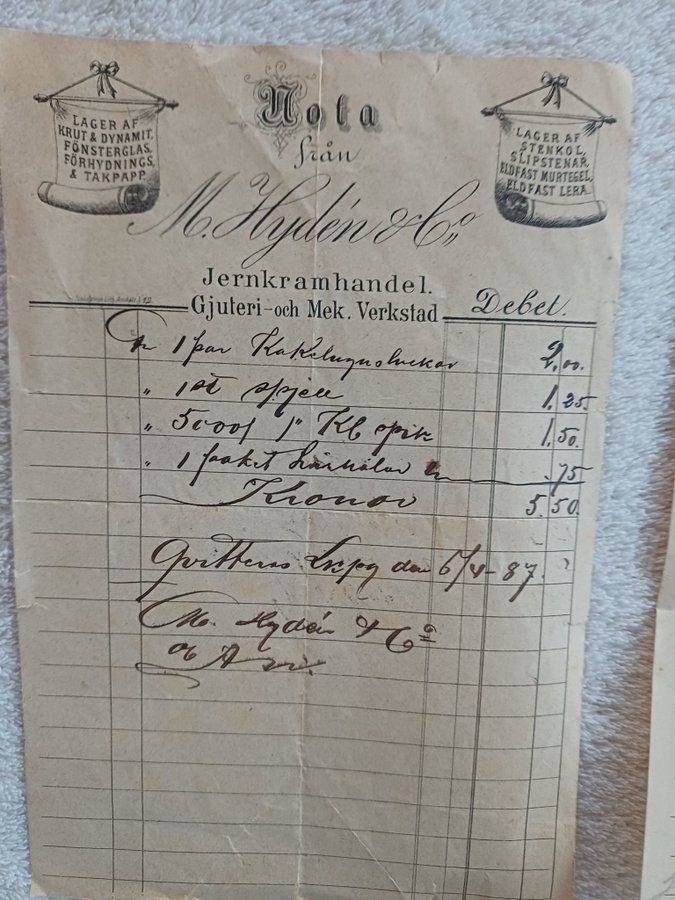 Nota
från
LAGER AF
KRUT & DYNAMIT,
FÖNSTERGLAS,
FÖRHYDNINGS,
& TAKPAPP.
LAGER AF
STENKOL,
SLIPSTENAR,
ELDFAST MURTEGEL,
ELDFAST LERA.
M. Hydén & Co.
Jernkramhandel.
Gjuteri-och Mek. Verkstad
Debet.
1 par Kakelugnsluckor 2,00.
" 1 st spjell 1,25.
" 5000/ 1" Kb spik 1,50.
" 1 paket .75
Kronor 5,50.
Qvitteras Lkpg den 5/4-87.
M. Hydén & Co